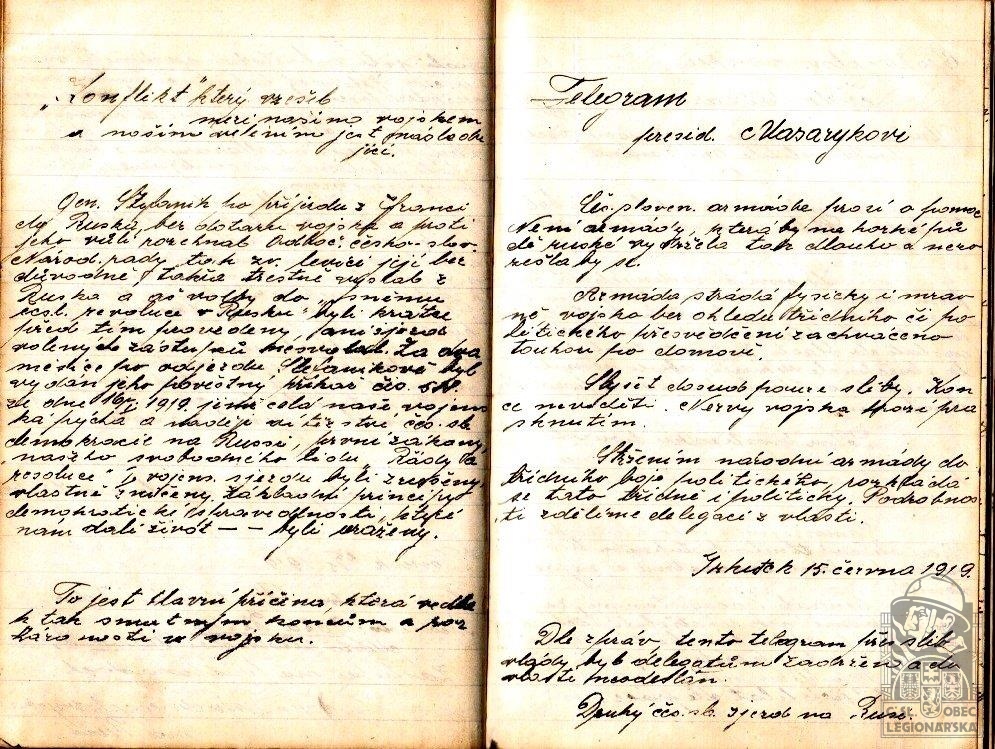 „Konflikt" který vzešel
mezi našimo vojskem
a našimo velením jest následu
jící.
Gen. Štefanik po příjezdu z Franci
do Ruska, bez dotazu vojska a proti
jeho vůli rozehnal Odboč. česko-slov.
Národ. rady, tak zv. levici její bez
důvodně, takřka trestně vyslal z
Ruska a ač volby do „sněmu
čsl. revoluce v Rusku" byli krátce
před tím provedeny, ani sjezd
volených zástupců nesvolal. Za dva
měsíce po odjezdu Štefanikově byl
vydán jeho pověstný příkaz čs. sb.
ze dne 16/I 1919. jímž celá naše vojens
ká pýcha a naděje vítězství čs. sb.
demokracie na Russi, první zákony,
našeho svobodného lidu „Řády a
resoluce" I. vojens. sjezdu byli zrušeny,
vlastně zničeny. Základní principy
demokratické spravedlnosti, které
nám dali život — — byli uraženy.
To jest hlavní příčina, která vedla
k tak smutným koncům a poz
kázanosti v vojsku.
Telegram
presid. Masarykovi
Čs. sloven. armáda prosí o pomoc
Není armády, která by na horké pů
dě ruské vydržela tak dlouho a nero
zešla by se.
Armáda strádá fysicky i mrav
ně vojsko bez ohledu třídního či po
litického přesvědčení zachváceno
touhou po domovi.
Slyšet dosud pouze sliby. Kon
ce neviděti. Nervy vojska hrozí pra
sknutím.
Stržením národní armády do
třídního boje politického, rozkládá
se tato třídně i politicky. Podrobnos
ti sdělíme delegaci z vlasti.
Irkutsk 15. června 1919.
Dle zpráv tento telegram přes slib
vlády, byl delegatům zadržen a do
vlasti neodeslán.
Druhý čs. sb. sjezd na Rusi.
ČSL. OBEC
LEGIONÁŘSKÁ